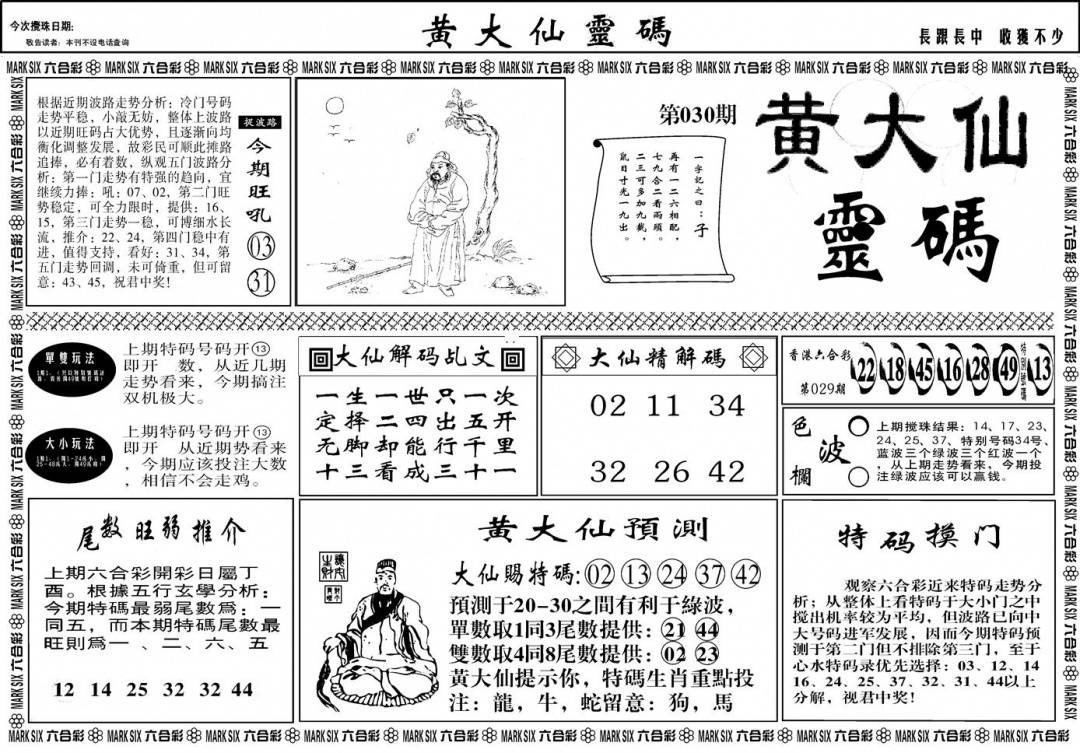 今次攪珠日期:
敬告读者: 本刊不设电话查询
黄大仙靈碼
長跟長中 收獲不少
MARK SIX 六合彩 MARK SIX 六合彩 MARK SIX 六合彩 MARK SIX 六合彩 MARK SIX 六合彩 MARK SIX 六合彩 MARK SIX 六合彩 MARK SIX 六合彩 MARK SIX 六合彩 MARK SIX 六合彩 MARK SIX 六合彩
根据近期波路走势分析: 冷门号码
走势平稳, 小敲无妨, 整体上波路
以近期旺码占大优势, 且逐渐向均
衡化调整发展, 故彩民可顺此摊路
追捧, 必有着数, 纵观五门波路分
析: 第一门走势有特强的趋向, 宜
继续力捧: 吼: 07、02, 第二门旺
势稳定, 可全力限时, 提供: 16、
15, 第三门走势一稳, 可博细水长
流, 推介: 22、24, 第四门稳中有
进, 值得支持, 看好: 31、34, 第
五门走势回调, 未可倚重, 但可留
意: 43、45, 祝君中奖!
捉波路
今期旺吼
03
31
第030期
一字記之曰: 子
再有一二六相配,
七九合二看兩頭。
二三可多加九載,
鼠目寸光一九出。
黄大仙
靈碼
單雙玩法
上期特码号码开⑬
即开 数, 从近几期
走势看来, 今期搞注
双机极大。
大小玩法
上期特码号码开⑬
即开 从近期势看来
, 今期应该投注大数
, 相信不会走鸡。
大仙解码乩文
一生一世只一次
定择二四出五开
无脚却能行千里
十三看成三十一
大仙精解碼
02 11 34
32 26 42
香港六合彩
第029期
22 18 45 16 28 49 特别號碼 13
色波欄
上期搅珠结果: 14、17、23、
24、25、37、特别号码34号、
蓝波三个绿波三个红波一个
, 从上期走势看来, 今期投
注绿波应该可以赢钱。
尾数旺弱推介
上期六合彩開彩日屬丁
酉。根據五行玄學分析:
今期特碼最弱尾數爲: 一
同五, 而本期特碼尾數最
旺則爲一 、二、六、五
12 14 25 32 32 44
黄大仙預測
大仙賜特碼: 02 13 24 37 42
預測于20-30之間有利于綠波,
單數取1同3尾數提供: 21 44
雙數取4同8尾數提供: 02 23
黄大仙提示你, 特碼生肖重點投
注: 龍, 牛, 蛇留意: 狗, 馬
特码摸门
观察六合彩近来特码走势分
析; 从整体上看特码于大小门之中
搅出机率较为平均, 但波路已向中
大号码进军发展, 因而今期特码预
测于第二门但不排除第三门, 至于
心水特码录优先选择: 03、12、14
16、24、25、37、32、31、44以上
分解, 祝君中奖!
MARK SIX 六合彩 MARK SIX 六合彩 MARK SIX 六合彩 MARK SIX 六合彩 MARK SIX 六合彩 MARK SIX 六合彩 MARK SIX 六合彩 MARK SIX 六合彩 MARK SIX 六合彩 MARK SIX 六合彩 MARK SIX 六合彩